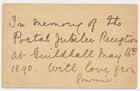 In Memory of the
Postal Jubilee Reception
at Guildhall May 16th
1890. With love from